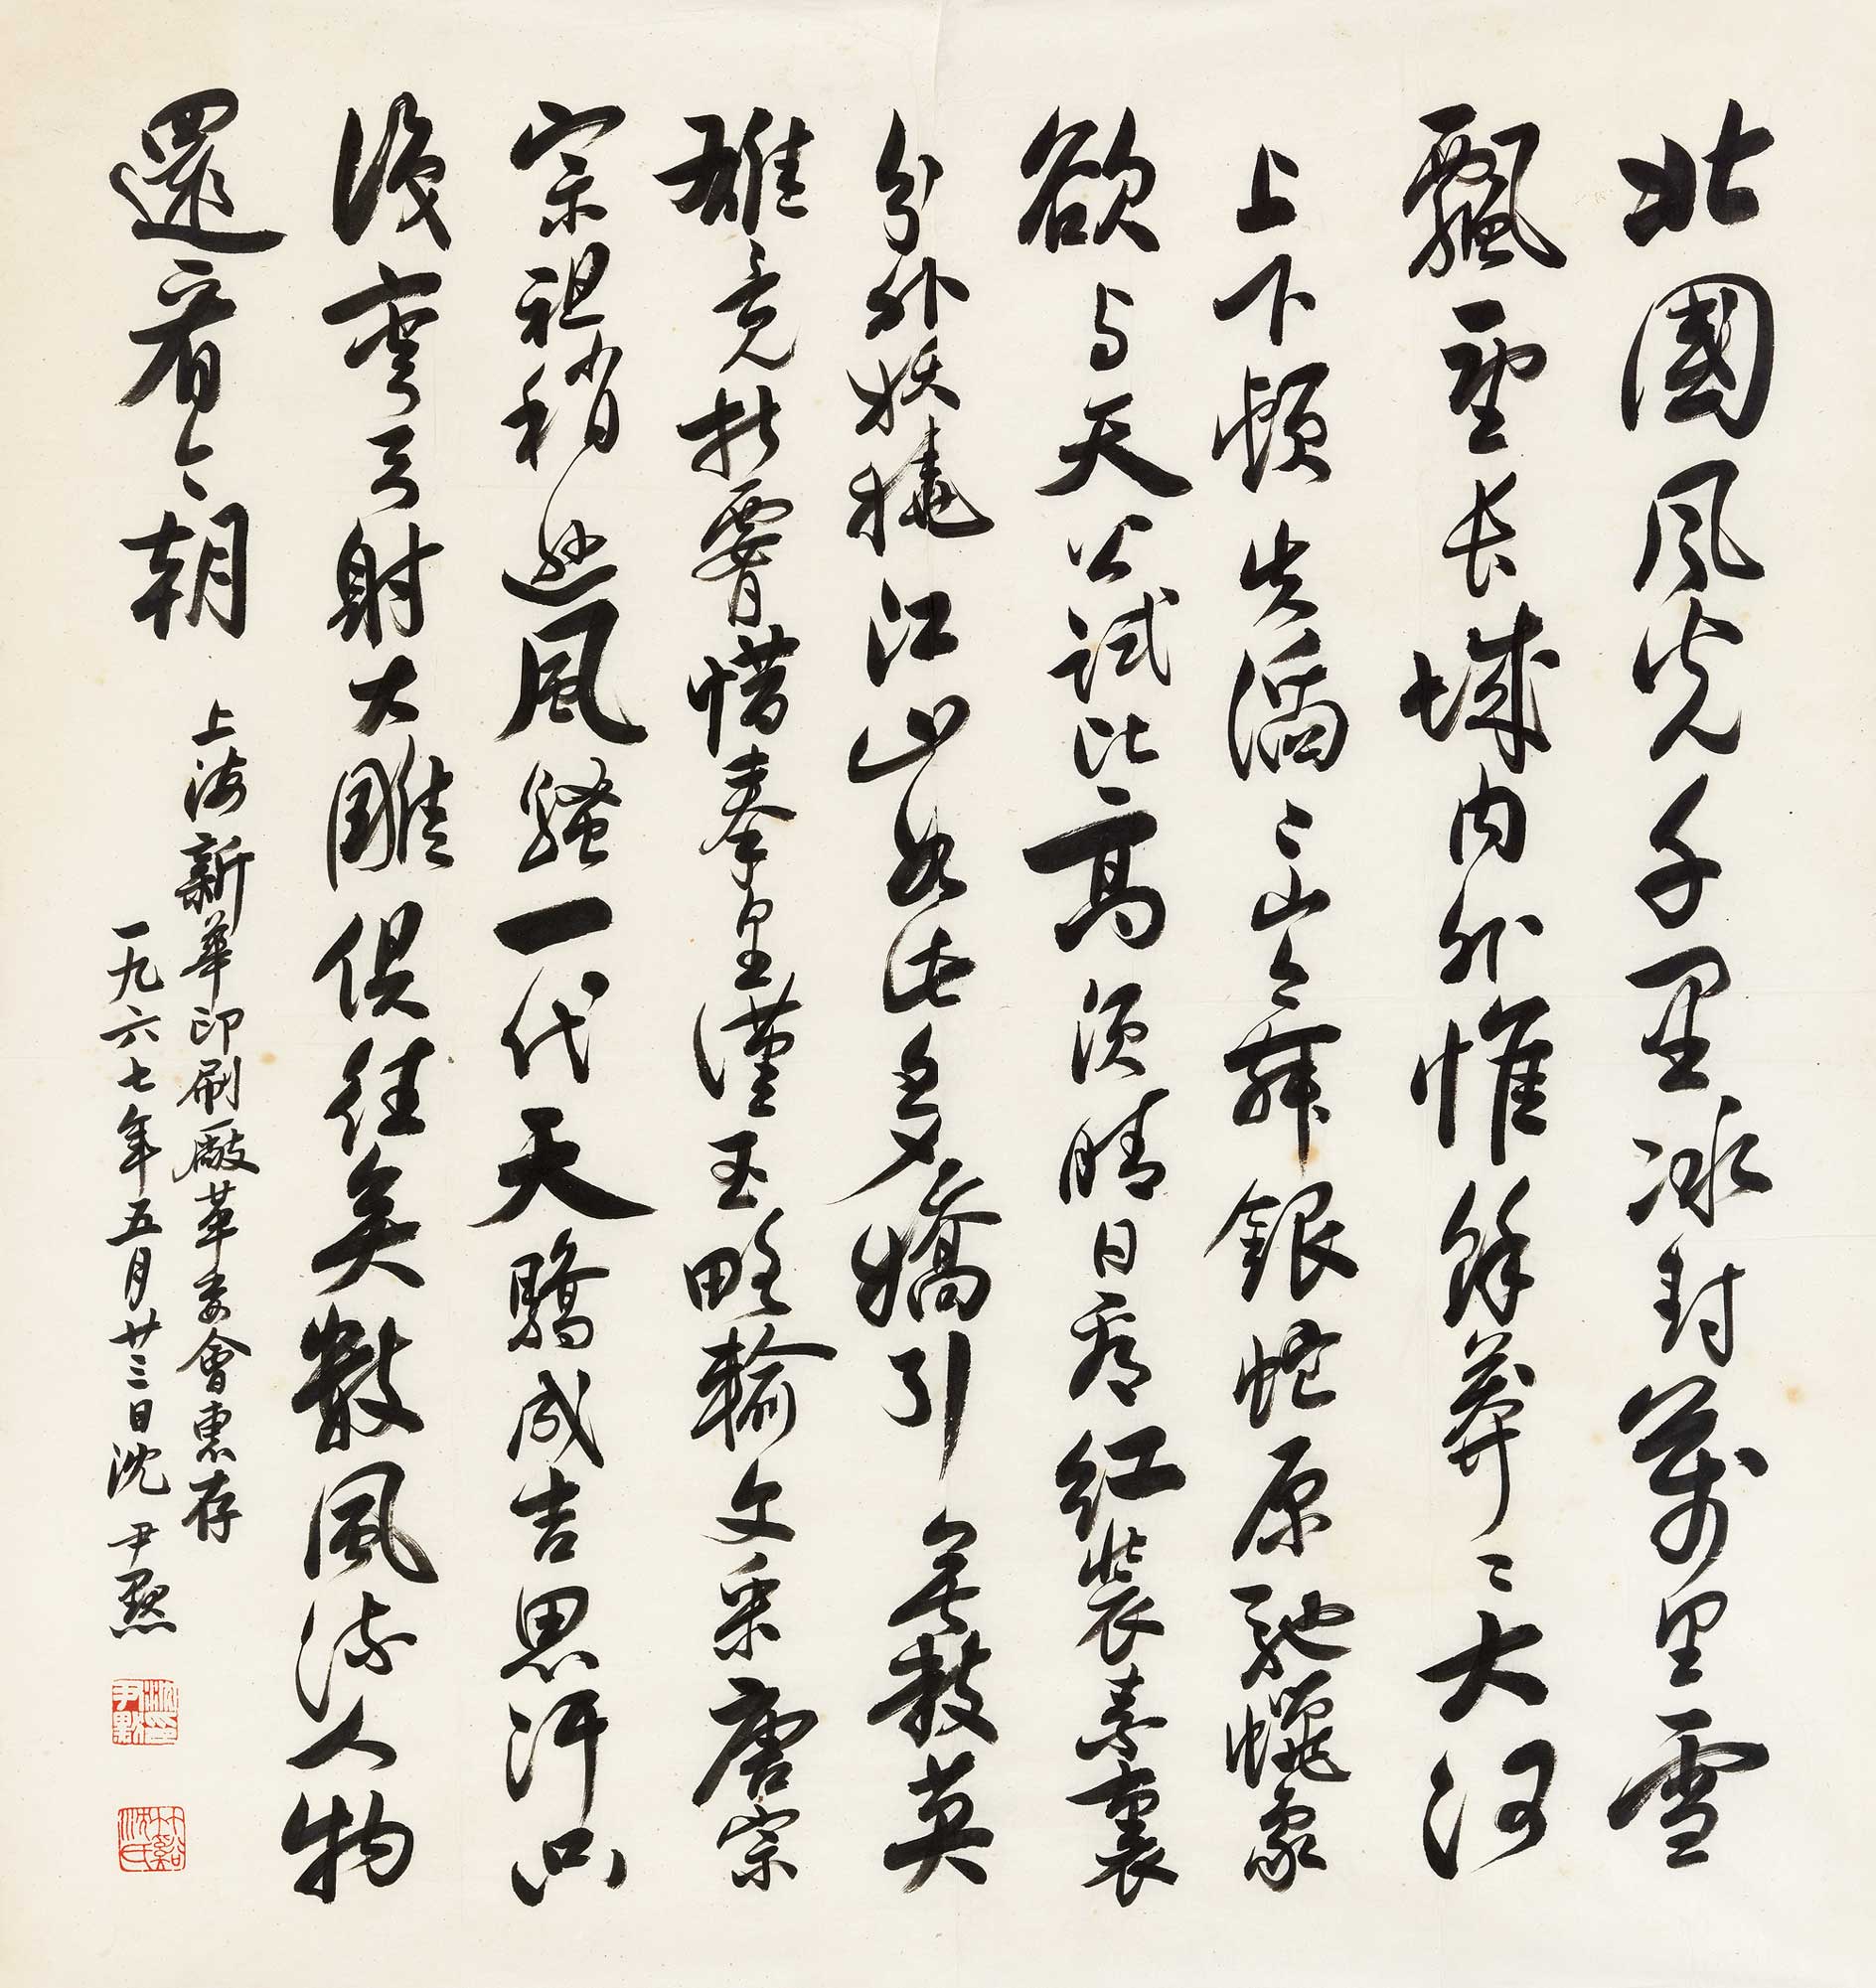 北國風光千里冰封萬里雪
飄望长城内外惟餘莽〻大河
上下頓失滔〻山舞銀蛇原馳蠟象
欲与天公試比高須晴日看红裝素裹
分外妖嬈江山如此多嬌引無數英
雄竞折腰惜秦皇漢武略輸文采唐宗
宋祖稍遜風騷一代天驕成吉思汗只
識彎弓射大雕俱往矣數風流人物
還看今朝
上海新華印刷廠革委會惠存
一九六七年五月廿三日沈尹默
沈尹默印
竹谿沈氏